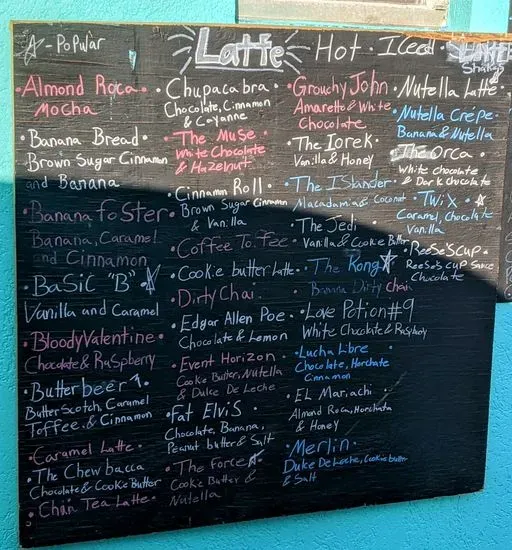 ☆ - Popular
Latte
Hot · Iced
Shakes
· Almond Roca ·
Mocha
· Banana Bread ·
Brown Sugar Cinnamon
and Banana
· Banana foster ·
Banana, Caramel
and Cinnamon
· BaSiC "B" · ☆
Vanilla and Caramel
· Bloody Valentine ·
Chocolate & Raspberry
· Butterbeer ·
Butter Scotch, Caramel
Toffee & Cinnamon
· Caramel Latte ·
· The Chewbacca
Chocolate & Cookie Butter
· Chai Tea Latte ·
· Chupacabra ·
Chocolate, Cinnamon
& Cayanne
· The Muse ·
White Chocolate
& Hazelnut
· Cinnamon Roll ·
Brown Sugar Cinnamon
& Vanilla
· Coffee Toffee ·
· Cookie butter Latte ·
· Dirty Chai ·
· Edgar Allen Poe ·
Chocolate & Lemon
· Event Horizon ·
Cookie Butter, Nutella
& Dulce De Leche
· Fat Elvis ·
Chocolate, Banana,
Peanut butter & Salt
· The Force ☆
Cookie Butter &
Nutella
· Grouchy John ·
Amaretto & White
Chocolate
· The Iorek ·
Vanilla & Honey
· The Islander ·
Macadamia & Coconut
· The Jedi ·
Vanilla & Cookie Butter
· The Kong ☆
Banana Dirty chai
· Love Potion #9
White Chocolate & Raspberry
· Lucha Libre ·
Chocolate, Horchata
Cinnamon
· EL Mariachi ·
Almond Roca, Horchata
& Honey
· Merlin ·
Dulce De Leche, Cookie butter
& Salt
· Nutella Latte ·
· Nutella Crépe ·
Banana & Nutella
· The Orca ·
White Chocolate
& Dark Chocolate
· TWiX · ☆
Caramel, Chocolate
Vanilla
· Reese's Cup ·
Reese's Cup Sauce
Chocolate